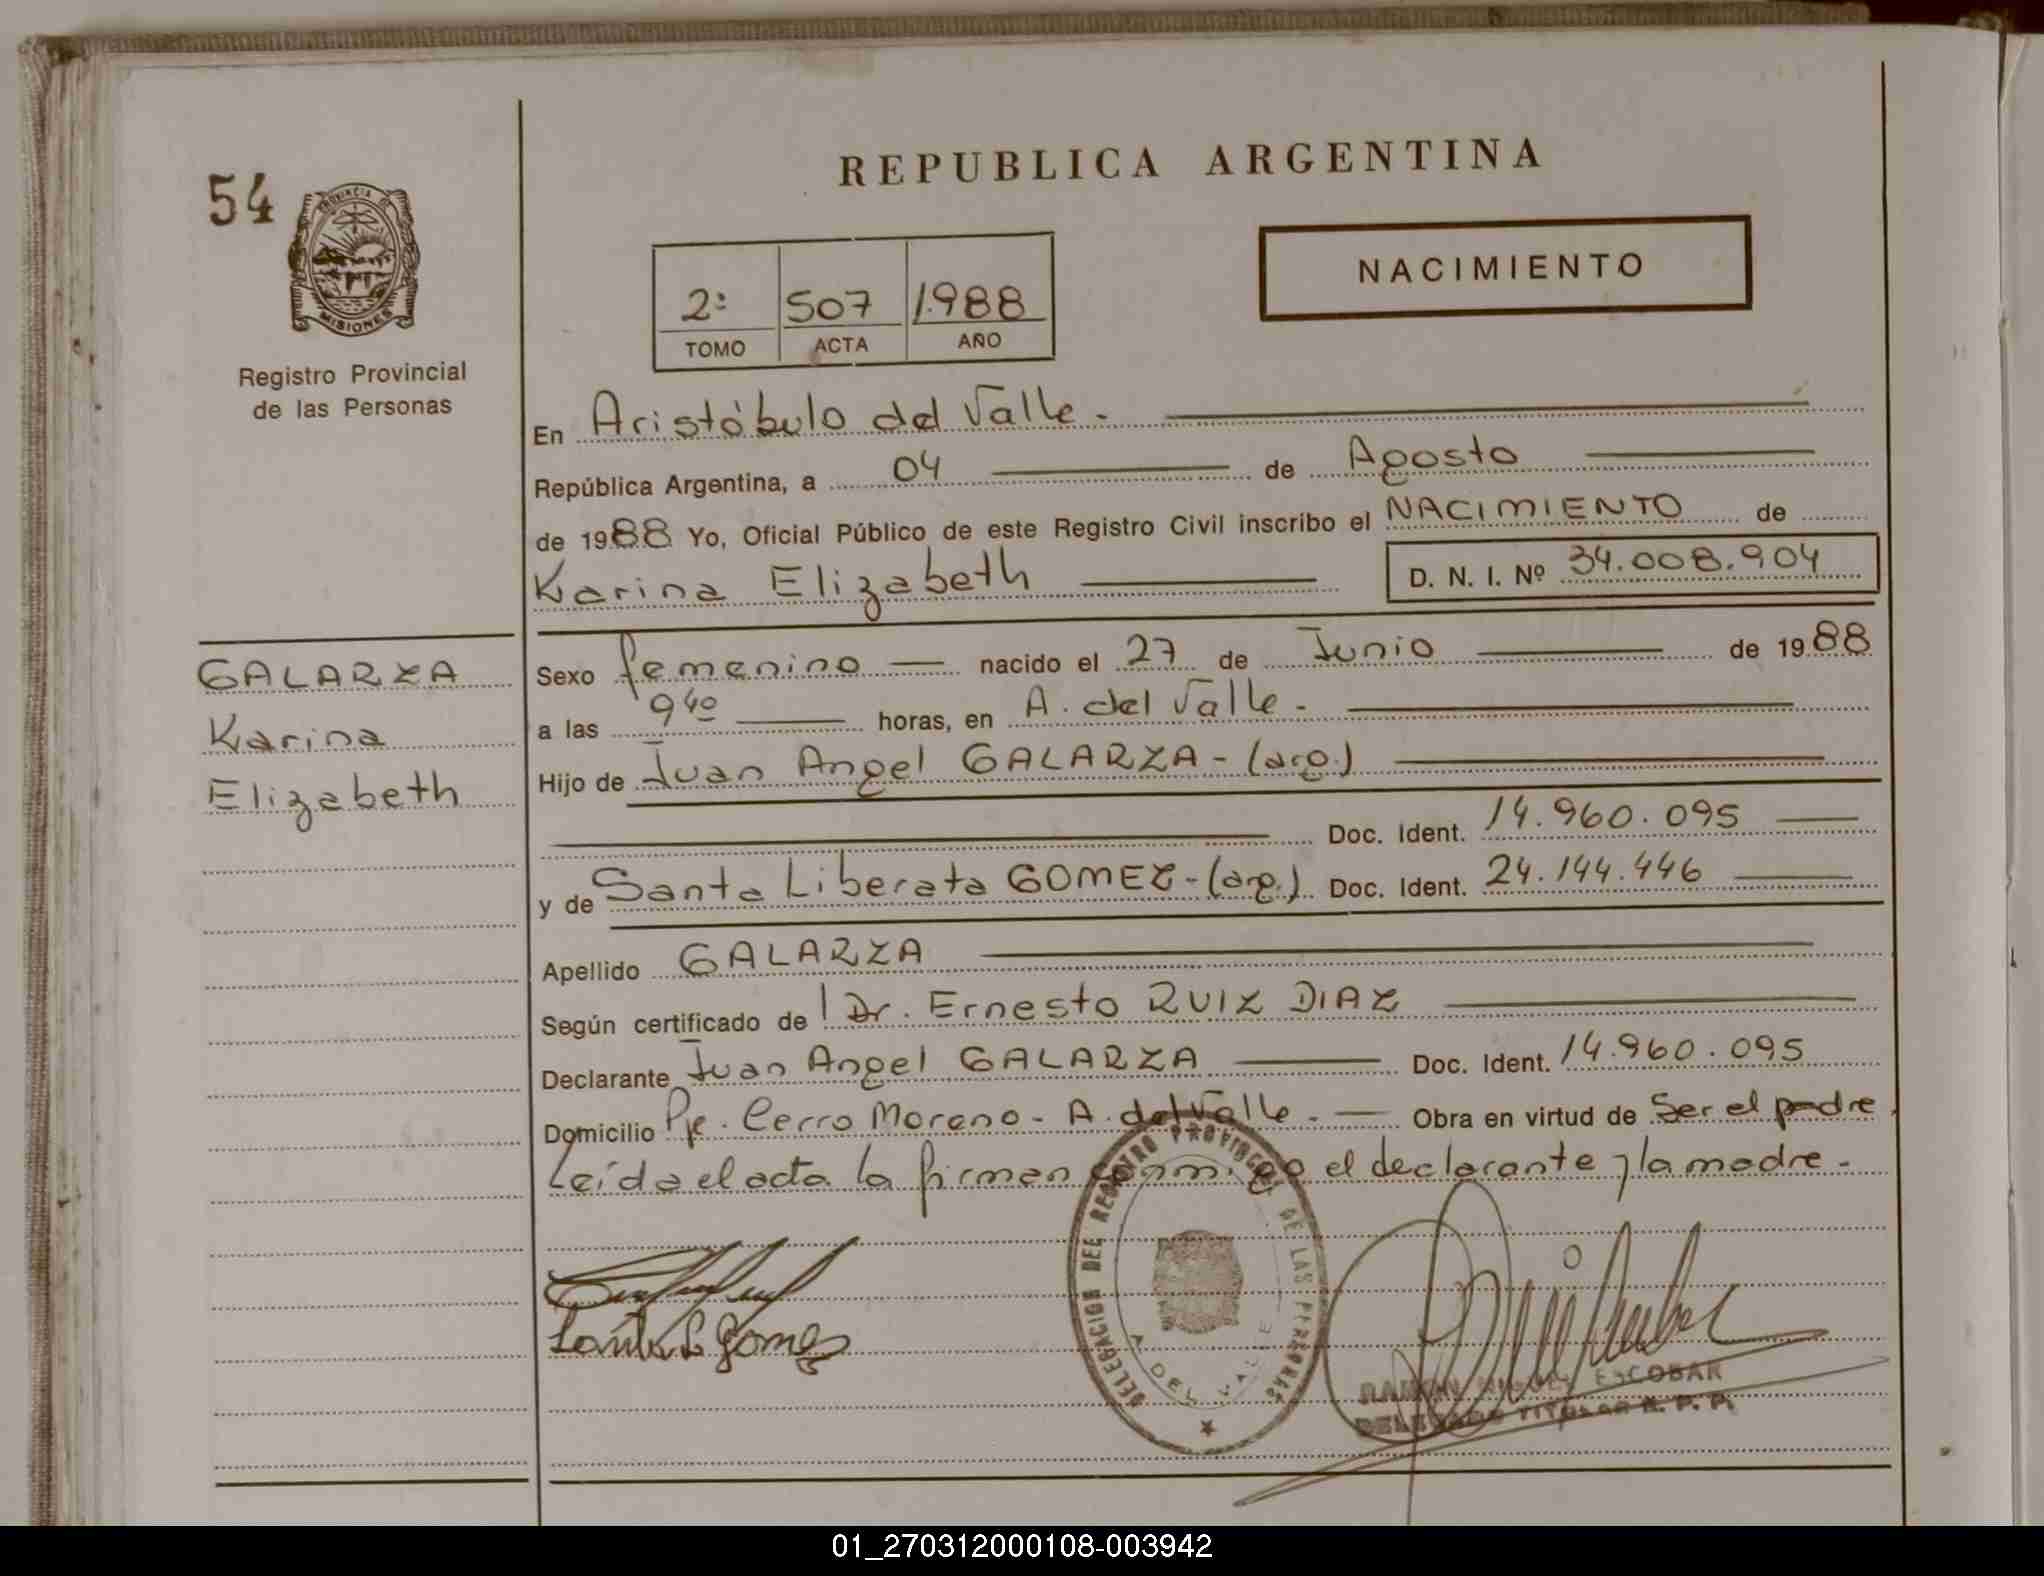 54
PROVINCIA DE
MISIONES
Registro Provincial
de las Personas
GALARZA
Karina
Elizabeth
REPUBLICA ARGENTINA
NACIMIENTO
2º 507 1.988
TOMO ACTA AÑO
En Aristóbulo del Valle.-
República Argentina, a 04 de Agosto
de 1988 Yo, Oficial Público de este Registro Civil inscribo el NACIMIENTO de
Karina Elizabeth D. N. I. Nº 34.008.904
Sexo femenino nacido el 27 de Junio de 1988
a las 9 40 horas, en A. del Valle.-
Hijo de Juan Angel GALARZA - (arg.)
Doc. Ident. 14.960.095
y de Santa Liberata GOMEZ - (arg.) Doc. Ident. 24.144.446
Apellido GALARZA
Según certificado de Dr. Ernesto RUIZ DIAZ
Declarante Juan Angel GALARZA Doc. Ident. 14.960.095
Domicilio Pje. Cerro Moreno - A. del Valle.- Obra en virtud de Ser el padre.
Leída el acta la firman conmigo el declarante y la madre.-
Santa L Gomez
DELEGACION DEL REGISTRO PROVINCIAL DE LAS PERSONAS
A. DEL VALLE
RAMON MIGUEL ESCOBAR
DELEGADO TITULAR R. P. P.
01_270312000108-003942